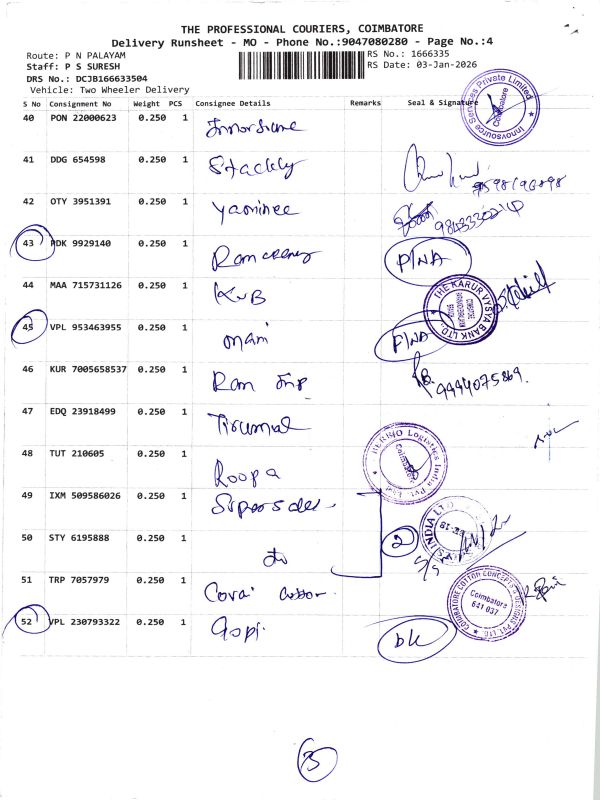 THE PROFESSIONAL COURIERS, COIMBATORE
Delivery Runsheet - MO - Phone No.:9047080280 - Page No.:4
Route: P N PALAYAM
RS No.: 1666335
Staff: P S SURESH
RS Date: 03-Jan-2026
DRS No.: DCJB166633504
Vehicle: Two Wheeler Delivery
S No Consignment No Weight PCS Consignee Details Remarks Seal & Signature
40 PON 22000623 0.250 1
Innovsource Services Private Limited Coimbatore
41 DDG 654598 0.250 1 Stackly
42 OTY 3951391 0.250 1 Yaminee
43 PDK 9929140 0.250 1 P/NA
44 MAA 715731126 0.250 1 KVB
THE KARUR VYSYA BANK LTD.,
45 VPL 953463955 0.250 1 mani P/NA
46 KUR 7005658537 0.250 1 Ram 9994075869.
47 EDQ 23918499 0.250 1 Tirumal
48 TUT 210605 0.250 1 Roopa
Logistics India Pvt. Ltd. Coimbatore
49 IXM 509586026 0.250 1
50 STY 6195888 0.250 1 do 2
INDIA LTD
51 TRP 7057979 0.250 1 Covai cotton
COIMBATORE COTTON CONCEPTS & DESIGNS PVT LTD. Coimbatore 641 037
52 VPL 230793322 0.250 1 Gopi DK